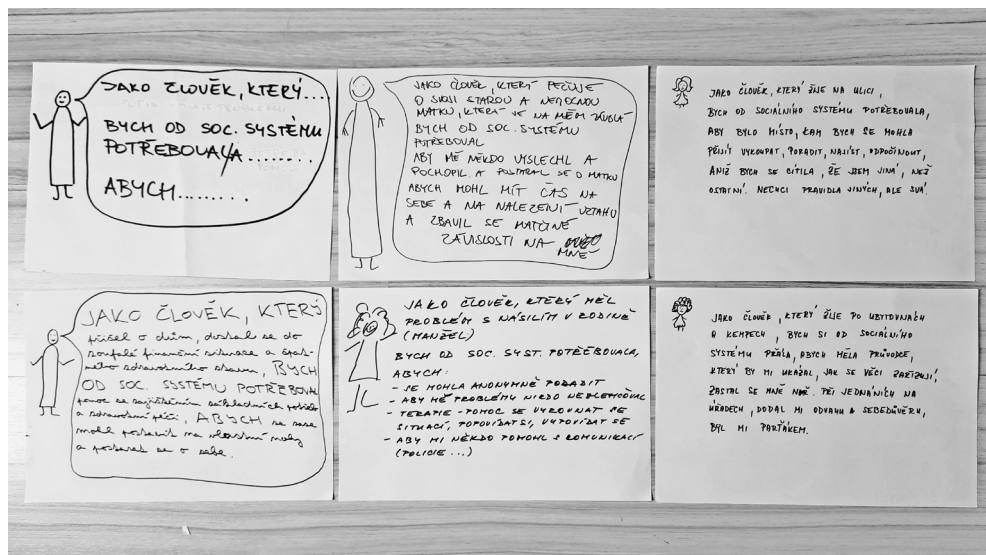 JAKO ČLOVĚK, KTERÝ....
BYCH OD SOC. SYSTÉMU
POTŘEBOVAL/A........
ABYCH........
JAKO ČLOVĚK, KTERÝ PEČUJE
O SVOJI STAROU A NEMOCNOU
MATKU, KTERÁ JE NA MĚM ZÁVISLÁ
BYCH OD SOC. SYSTÉMU
POTŘEBOVAL
ABY MĚ NĚKDO VYSLECHL A
POCHOPIL A POSTARAL SE O MATKU
ABYCH MOHL MÍT ČAS NA
SEBE A NA NALEZENÍ VZTAHU
A ZBAVIL SE MATČINÉ
ZÁVISLOSTI NA
MNĚ
JAKO ČLOVĚK, KTERÝ ŽIJE NA ULICI,
BYCH OD SOCIÁLNÍHO SYSTÉMU POTŘEBOVALA,
ABY BYLO MÍSTO, KAM BYCH SE MOHLA
PŘIJÍT VYKOUPAT, PORADIT, NAJÍST, ODPOČINOUT,
ANIŽ BYCH SE CÍTILA, ŽE JSEM JINÁ, NEŽ
OSTATNÍ. NECHCI PRAVIDLA JINÝCH, ALE SVÁ.
JAKO ČLOVĚK, KTERÝ
přišel o dům, dostal se do
zoufalé finanční situace a špat-
ného zdravotního stavu, BYCH
OD SOC. SYSTÉMU POTŘEBOVAL
pomoc se zajištěním základních potřeb
a zdravotní péčí, ABYCH se zase
mohl postavit na vlastní nohy
a postarat se o sebe.
JAKO ČLOVĚK, KTERÝ MĚL
PROBLÉM S NÁSILÍM V RODINĚ
(MANŽEL)
BYCH OD SOC. SYST. POTŘEBOVALA,
ABYCH:
- SE MOHLA ANONYMNĚ PORADIT
- ABY MÉ PROBLÉMU NIKDO NEBLEHČOVAL
- TERAPIE - POMOC SE VYROVNAT SE
SITUACÍ, POPOVÍDAT SI, VYPOVÍDAT SE
- ABY MI NĚKDO POMOHL S KOMUNIKACÍ
(POLICIE ...)
JAKO ČLOVĚK, KTERÝ ŽIJE PO UBYTOVNÁCH
A KEMPECH, BYCH SI OD SOCIÁLNÍHO
SYSTÉMU PŘÁLA, ABYCH MĚLA PRŮVODCE,
KTERÝ BY MI UKÁZAL, JAK SE VĚCI ZAŘIZUJÍ,
ZASTAL SE MNĚ PŘI JEDNÁNÍCH NA
ÚŘADECH, DODAL MI ODVAHU A SEBEDŮVĚRU,
BYL MI PARŤÁKEM.